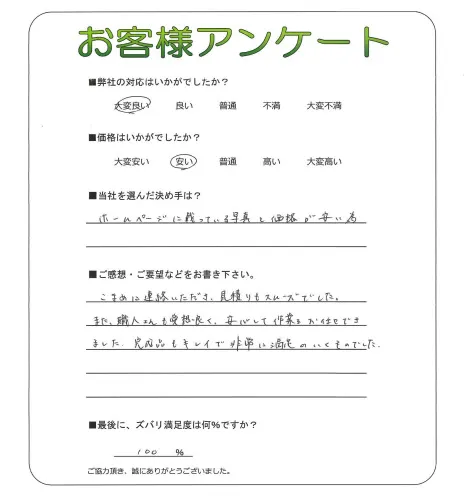 お客様アンケート
■弊社の対応はいかがでしたか？
大変良い 良い 普通 不満 大変不満
■価格はいかがでしたか？
大変安い 安い 普通 高い 大変高い
■当社を選んだ決め手は？
ホームページに載っている写真と価格が安い為
■ご感想・ご要望などをお書き下さい。
こまめに連絡いただき、見積りもスムーズでした。
また、職人さんも愛想良く、安心して作業をお任せでき
ました。完成品もキレイで非常に満足のいくものでした。
■最後に、ズバリ満足度は何％ですか？
100 %
ご協力頂き、誠にありがとうございました。